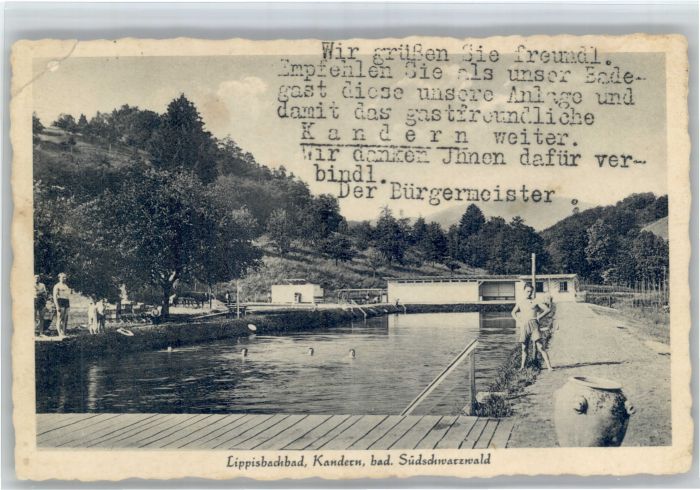 Wir grüßen Sie freundl.
Empfehlen Sie als unser Bade-
gast diese unsere Anlage und
damit das gastfreundliche
Kandern weiter.
Wir danken Jhnen dafür ver-
bindl.
Der Bürgermeister.
Lippisbachbad, Kandern, bad. Südschwarzwald